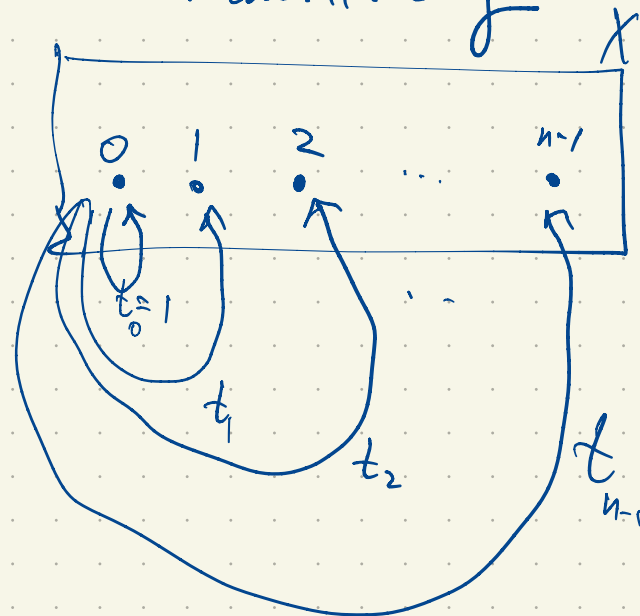 X
0 1 2 ... n-1
t₀ = 1
...
t₁
t₂